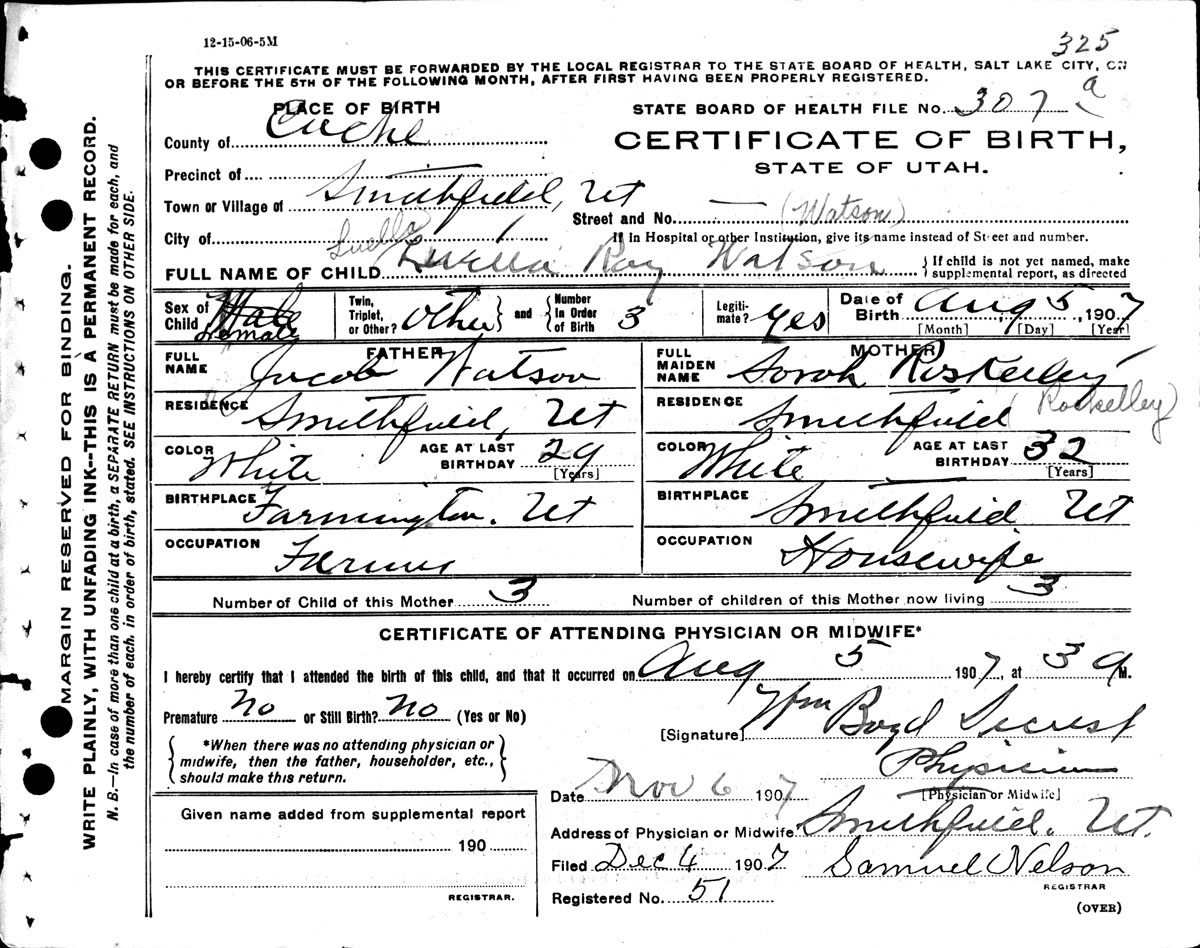 12-15-06-5M
325
THIS CERTIFICATE MUST BE FORWARDED BY THE LOCAL REGISTRAR TO THE STATE BOARD OF HEALTH, SALT LAKE CITY, ON
OR BEFORE THE 5TH OF THE FOLLOWING MONTH, AFTER FIRST HAVING BEEN PROPERLY REGISTERED.
PLACE OF BIRTH
STATE BOARD OF HEALTH FILE No. 307 a
County of Cache
CERTIFICATE OF BIRTH,
STATE OF UTAH.
Precinct of
Town or Village of Smithfield, Ut
Street and No. — (Watson)
City of
If In Hospital or other Institution, give its name instead of Street and number.
Luella
FULL NAME OF CHILD Luella Roy Watson { If child is not yet named, make supplemental report, as directed
Sex of Child Male Female
Twin, Triplet, or Other? Other } and { Number In Order of Birth 3
Legiti-mate? Yes
Date of Birth Aug 5, 1907
[Month] [Day] [Year]
FATHER
FULL NAME Jacob Watson
RESIDENCE Smithfield, Ut
COLOR White AGE AT LAST BIRTHDAY 29 [Years]
BIRTHPLACE Farmington. Ut
OCCUPATION Farmer
MOTHER
FULL MAIDEN NAME Sorah Roskelley
RESIDENCE Smithfield (Roskelley)
COLOR White AGE AT LAST BIRTHDAY 32 [Years]
BIRTHPLACE Smithfield Ut
OCCUPATION Housewife
Number of Child of this Mother 3 Number of children of this Mother now living 3
CERTIFICATE OF ATTENDING PHYSICIAN OR MIDWIFE*
I hereby certify that I attended the birth of this child, and that it occurred on Aug 5 1907, at 3 a M.
Premature No or Still Birth? No (Yes or No)
{ *When there was no attending physician or
midwife, then the father, householder, etc.,
should make this return. }
[Signature] Wm Boyd
Physician
[Physician or Midwife]
Date Nov 6 1907
Address of Physician or Midwife Smithfield. Ut.
Filed Dec 4 1907 Samuel Nelson
REGISTRAR
Registered No. 51
(OVER)
Given name added from supplemental report
190
REGISTRAR.
MARGIN RESERVED FOR BINDING.
WRITE PLAINLY, WITH UNFADING INK--THIS IS A PERMANENT RECORD.
N. B.—In case of more than one child at a birth, a SEPARATE RETURN must be made for each, and
the number of each, in order of birth, stated. SEE INSTRUCTIONS ON OTHER SIDE.